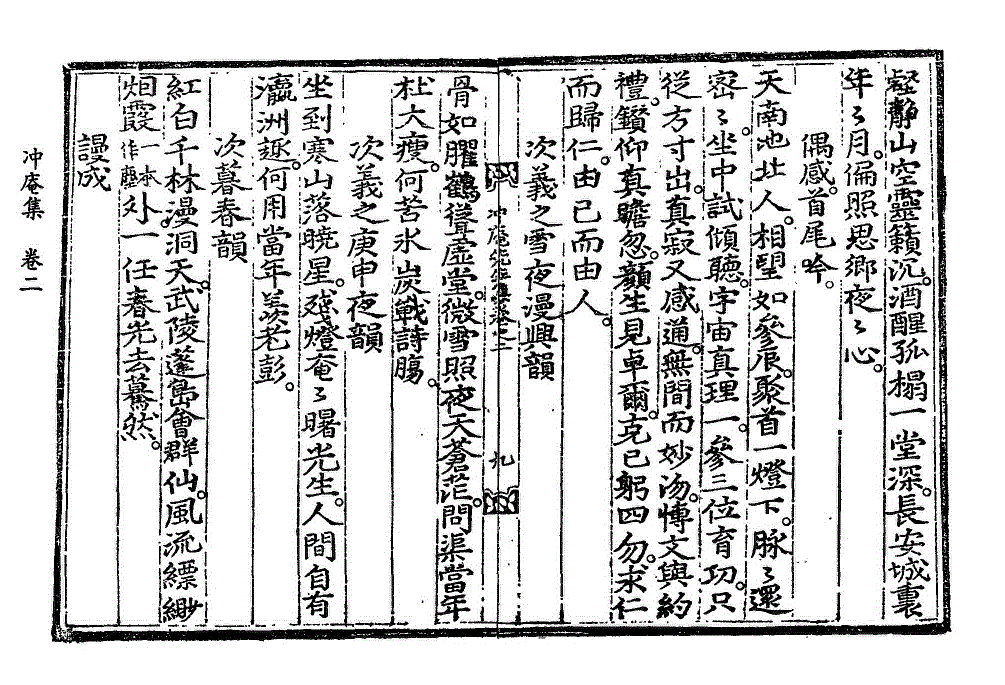 壑靜山空靈籟沉。酒醒孤榻一堂深。長安城裏
年〻月。偏照思鄉夜〻心。
偶感。首尾吟。
天南地北人。相望如參辰。聚首一燈下。脉〻還
密〻。坐中試傾聽。宇宙真理一。參三位育功。只
從方寸出。真寂又感通。無間而妙沕。愽文與約
禮。鑚仰真瞻忽。顔生見卓爾。克己躬四勿。求仁
而歸仁。由己而由人。
次義之雪夜漫興韻
骨如臞鶴聳虛堂。微雪照夜天蒼茫。問渠當年
杜大瘦。何苦氷炭戰詩膓。
次義之庚申夜韻
坐到寒山落曉星。殘燈庵〻曙光生。人間自有
瀛洲逐。何用當年羨老彭。
次暮春韻
紅白千林漫洞天。武陵蓬島會群仙。風流縹緲
烟霞一本作塵外。一任春光去驀然。
謾成
冲庵先生集卷之二
九
冲庵集 卷二